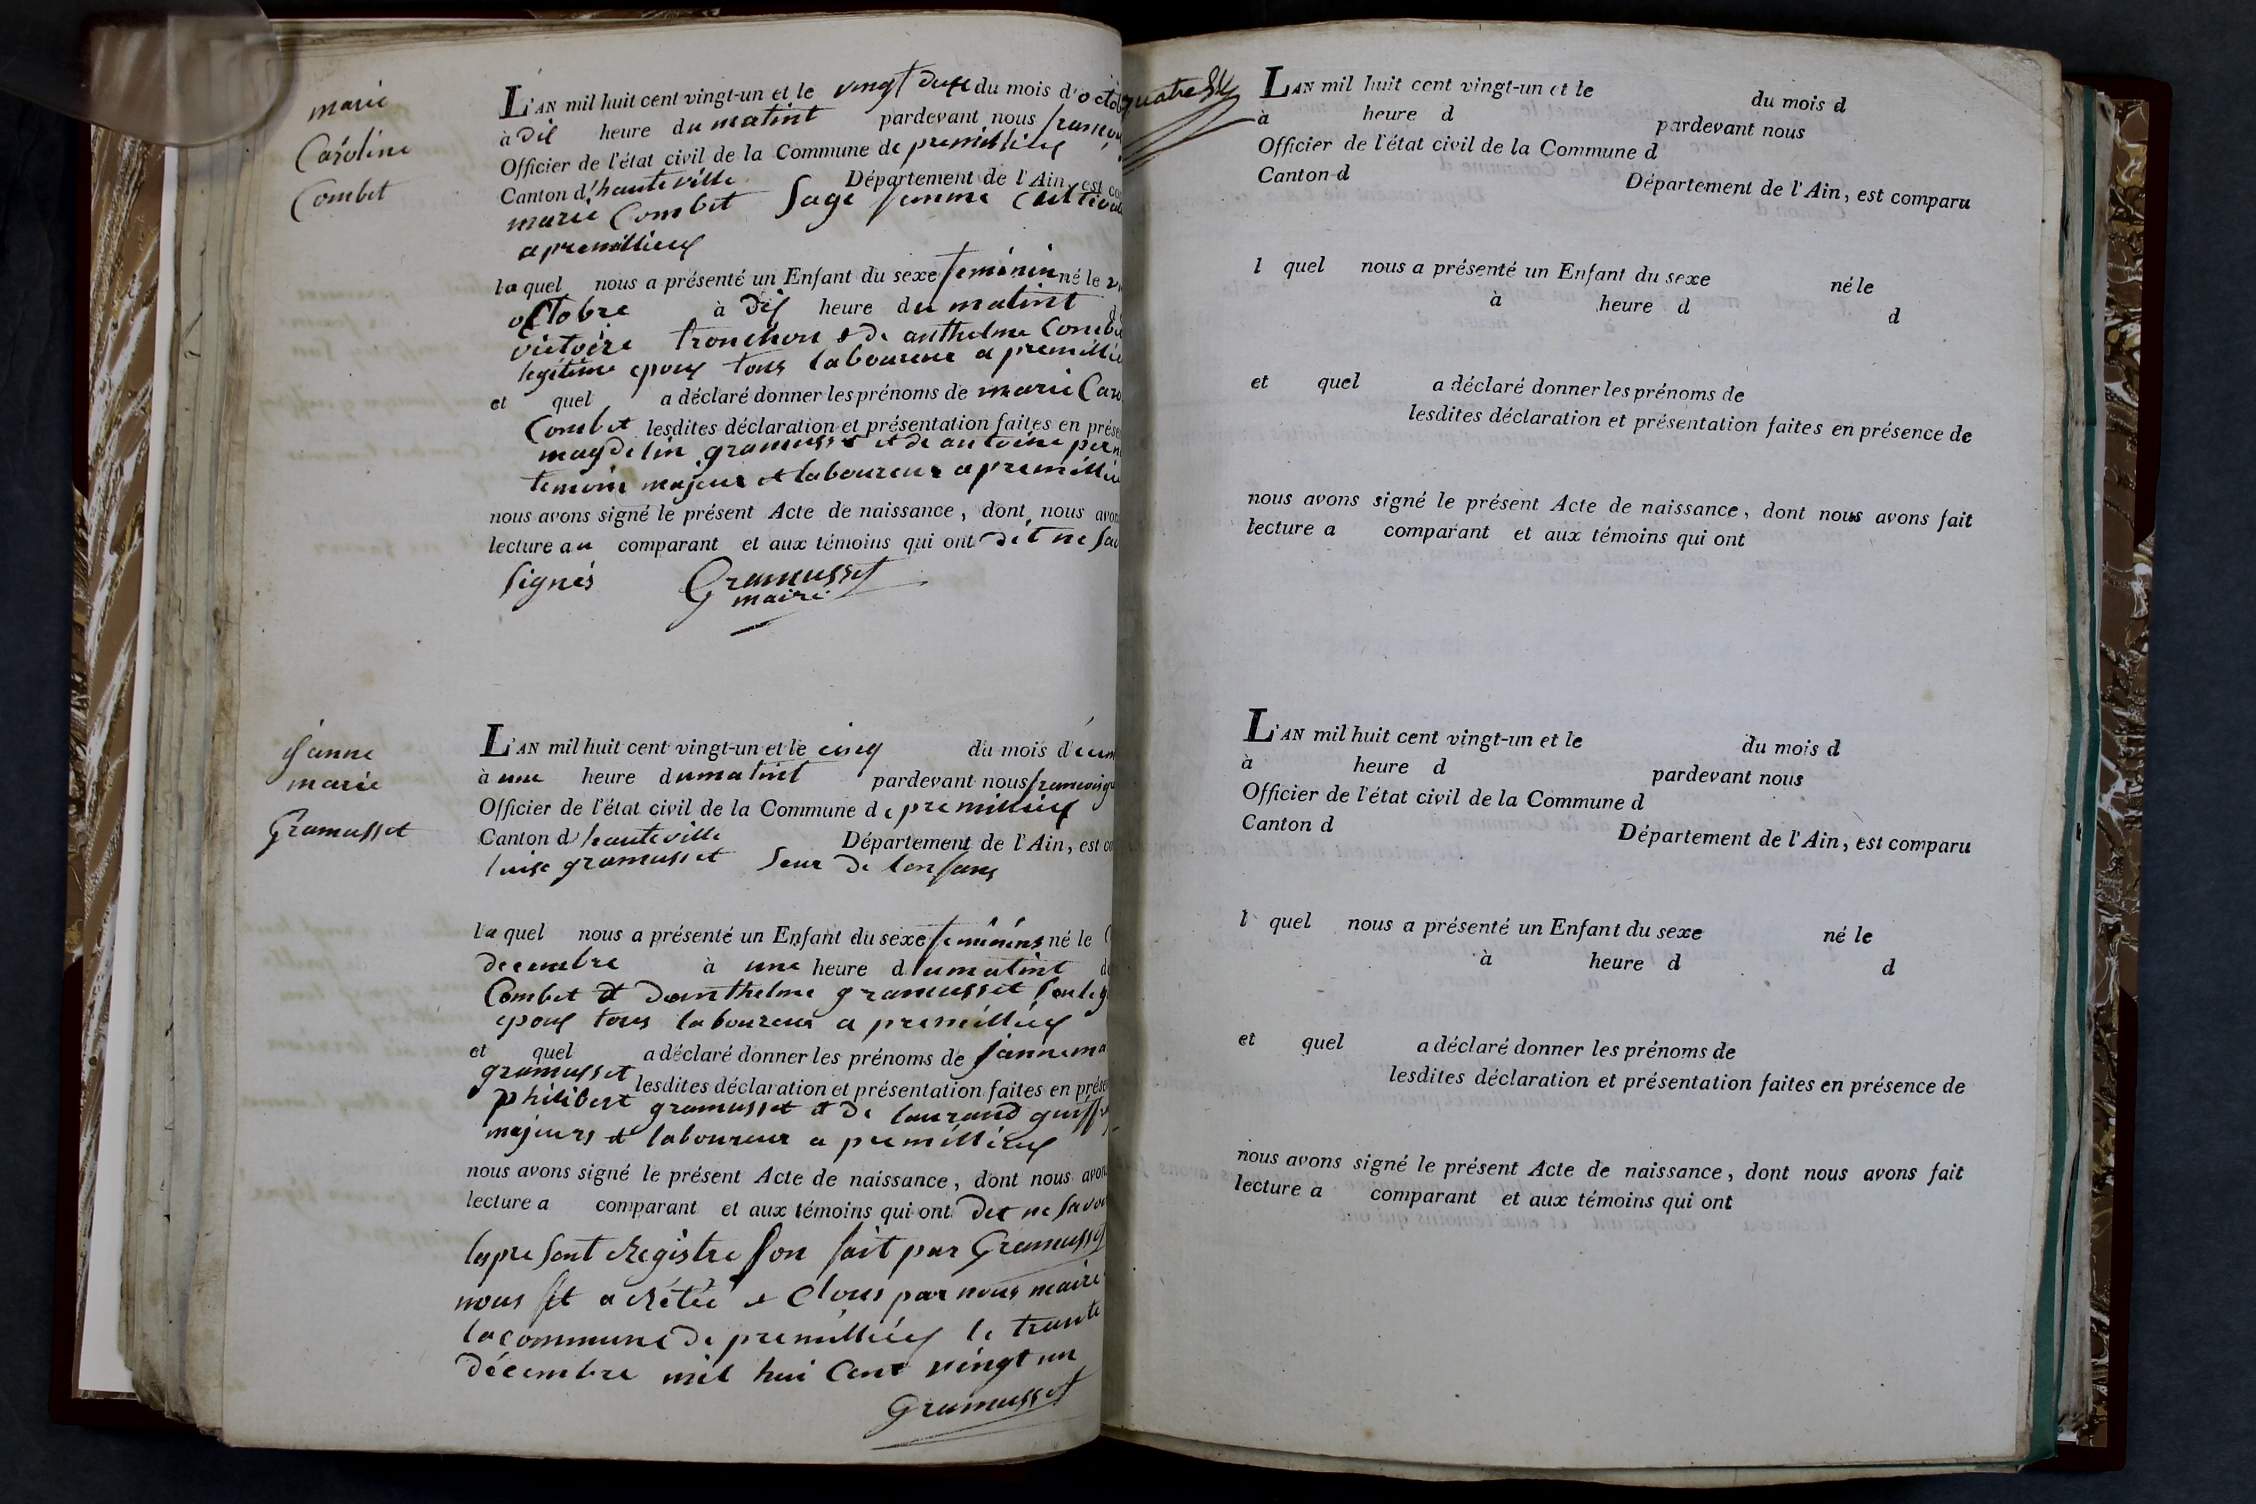 marie
Caroline
Combet
L'AN mil huit cent vingt-un et le vingt deux du mois d'octob
à dix heure du matint pardevant nous francoi
Officier de l'état civil de la Commune de premillieux
Canton d'hauteville Département de l'Ain, est co
marie Combet Sage femme Cultivat
a premillieux
la quel nous a présenté un Enfant du sexe feminin né le
octobre à dix heure du matint
victoire tronchon & de anthelme Combe
legitime epoux tous laboureur a premillie
et quel a déclaré donner les prénoms de marie Caro
Combet lesdites déclaration et présentation faites en prése
magdelin gramusset et de antoine
temoin majeur et laboureur a premillie
nous avons signé le présent Acte de naissance, dont nous avon
lecture au comparant et aux témoins qui ont dit ne sav
signés Gramusset
maire
janne
marie
Gramusset
L'AN mil huit cent vingt-un et le cinq du mois d
à une heure du matint pardevant nous francois
Officier de l'état civil de la Commune de premillieux
Canton d'hauteville Département de l'Ain, est co
luise gramusset seur de lenfans
la quel nous a présenté un Enfant du sexe feminins né le
decembre à une heure du matint d
Combet et danthelme gramusset
epoux tous laboureur a premillieux
et quel a déclaré donner les prénoms de jannema
gramusset lesdites déclaration et présentation faites en prése
philibert gramusset et de laurand
majeurs et laboureur a premillieux
nous avons signé le présent Acte de naissance, dont nous avon
lecture a comparant et aux témoins qui ont det ne savoi
le present Registre son fait par Gramusset
nous a rétéé et Clous par nous maire
la commune de premillieux le trante
décembre mil hui Cent vingt un
Gramusset
L'AN mil huit cent vingt-un et le du mois d
à heure d pardevant nous
Officier de l'état civil de la Commune d
Canton d Département de l'Ain, est comparu
l quel nous a présenté un Enfant du sexe né le
à heure d d
et quel a déclaré donner les prénoms de
lesdites déclaration et présentation faites en présence de
nous avons signé le présent Acte de naissance, dont nous avons fait
lecture a comparant et aux témoins qui ont
L'AN mil huit cent vingt-un et le du mois d
à heure d pardevant nous
Officier de l'état civil de la Commune d
Canton d Département de l'Ain, est comparu
l quel nous a présenté un Enfant du sexe né le
à heure d d
et quel a déclaré donner les prénoms de
lesdites déclaration et présentation faites en présence de
nous avons signé le présent Acte de naissance, dont nous avons fait
lecture a comparant et aux témoins qui ont